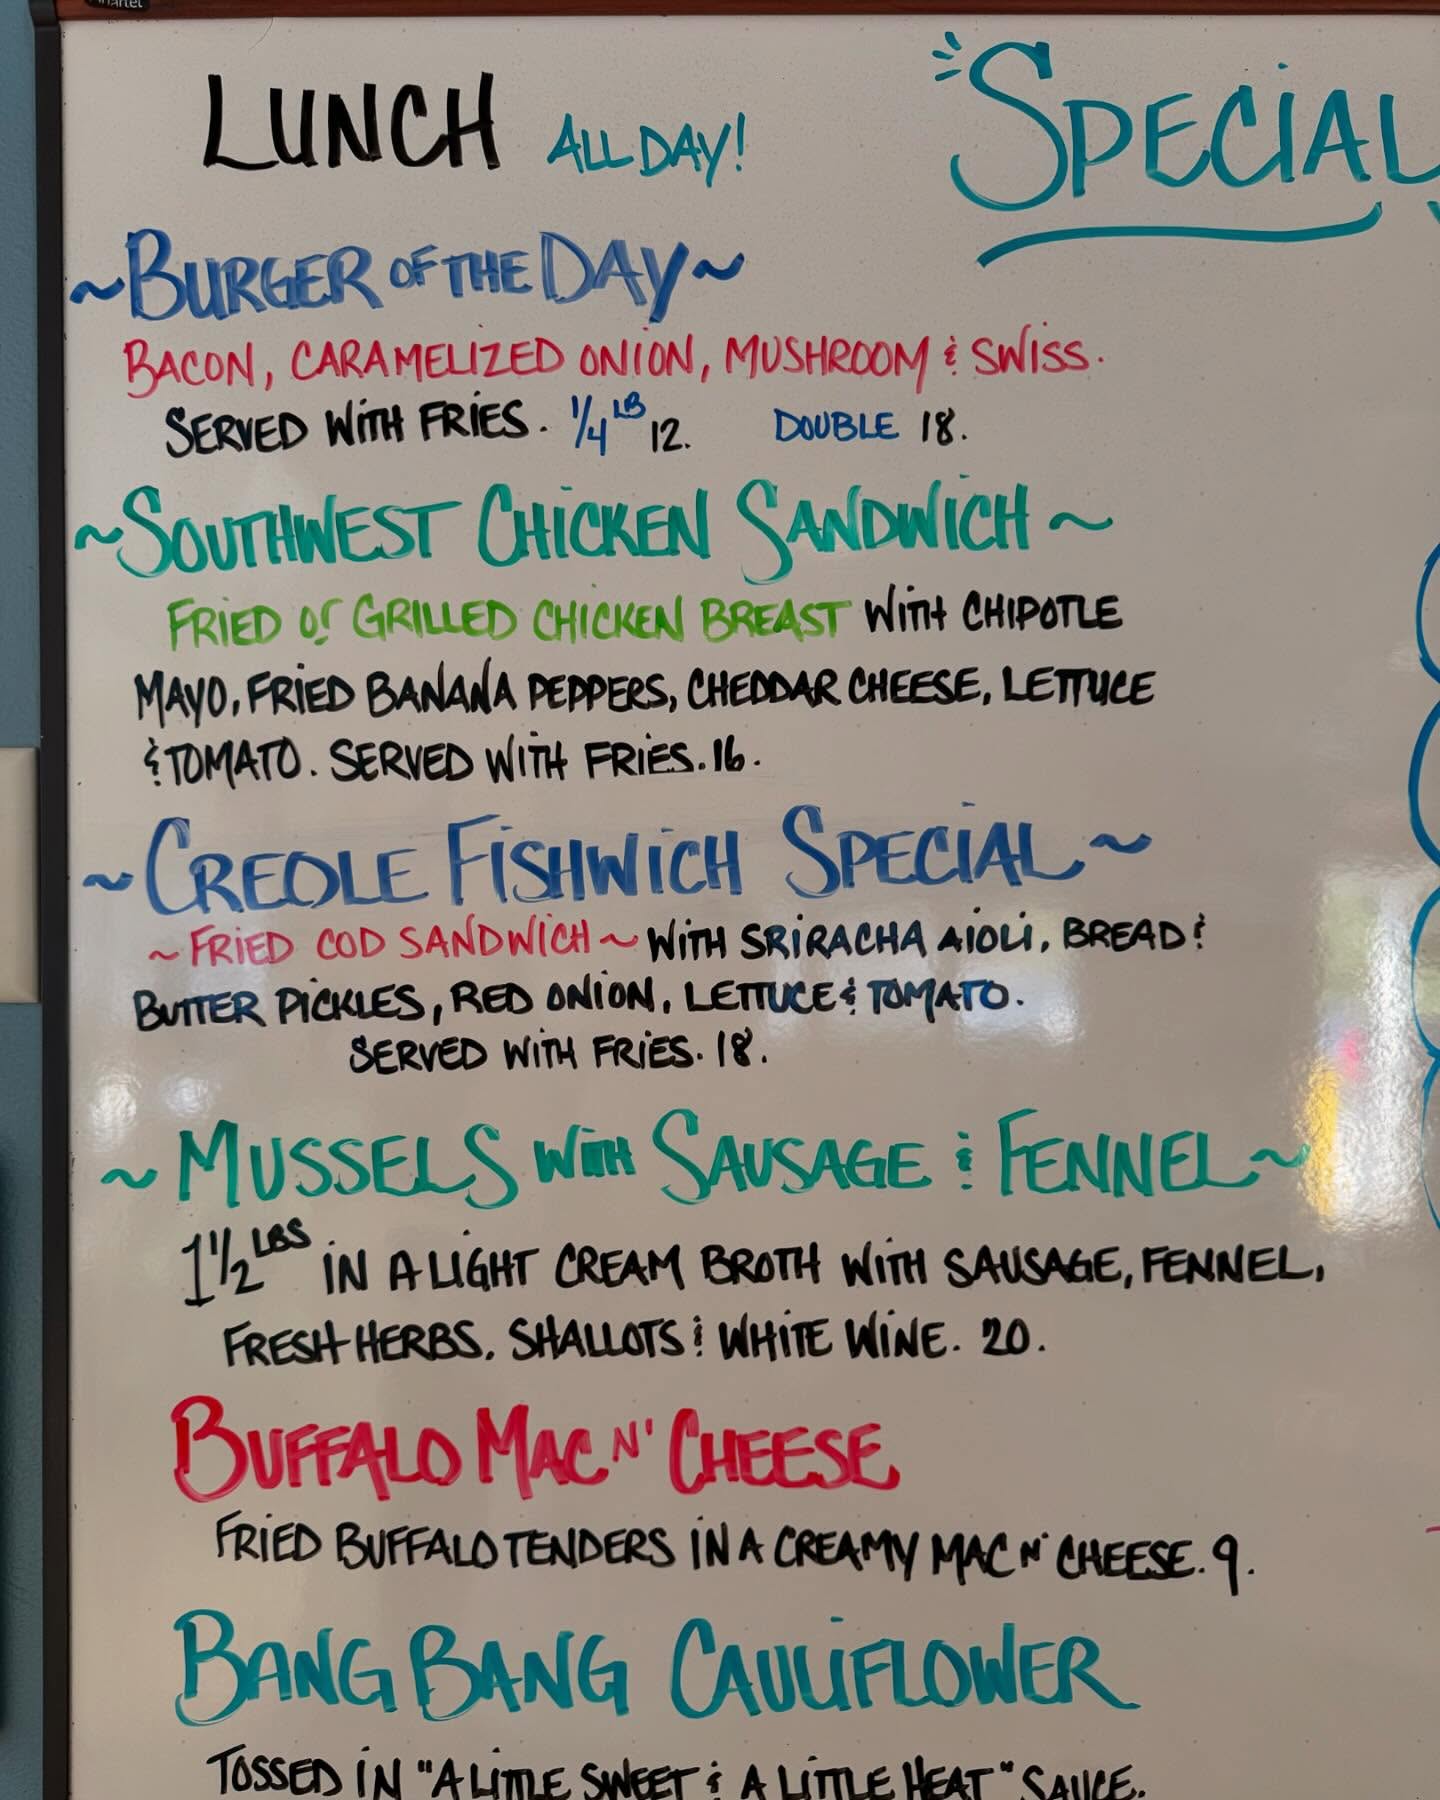 LUNCH ALL DAY!
SPECIAL
~BURGER OF THE DAY~
BACON, CARAMELIZED ONION, MUSHROOM & SWISS.
SERVED WITH FRIES. 1/4 LB 12. DOUBLE 18.
~SOUTHWEST CHICKEN SANDWICH~
FRIED or GRILLED CHICKEN BREAST WITH CHIPOTLE
MAYO, FRIED BANANA PEPPERS, CHEDDAR CHEESE, LETTUCE
& TOMATO. SERVED WITH FRIES. 16.
~CREOLE FISHWICH SPECIAL~
~FRIED COD SANDWICH~ WITH SRIRACHA AIOLI, BREAD &
BUTTER PICKLES, RED ONION, LETTUCE & TOMATO.
SERVED WITH FRIES. 18.
~MUSSELS WITH SAUSAGE & FENNEL~
1 1/2 LBS IN A LIGHT CREAM BROTH WITH SAUSAGE, FENNEL,
FRESH HERBS, SHALLOTS & WHITE WINE. 20.
BUFFALO MAC N' CHEESE
FRIED BUFFALO TENDERS IN A CREAMY MAC N' CHEESE. 9.
BANG BANG CAULIFLOWER
TOSSED IN "A LITTLE SWEET & A LITTLE HEAT" SAUCE.